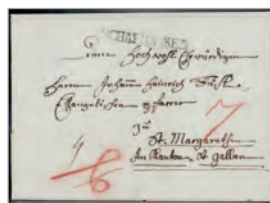 SCHAFHAUSEN
Hochwohl Ehrwürdigen
Herrn Johann Heinrich
Evangelischen Pfarrer
Zu
St. Margarethen
Im Kanton St. Gallen
4
7
6